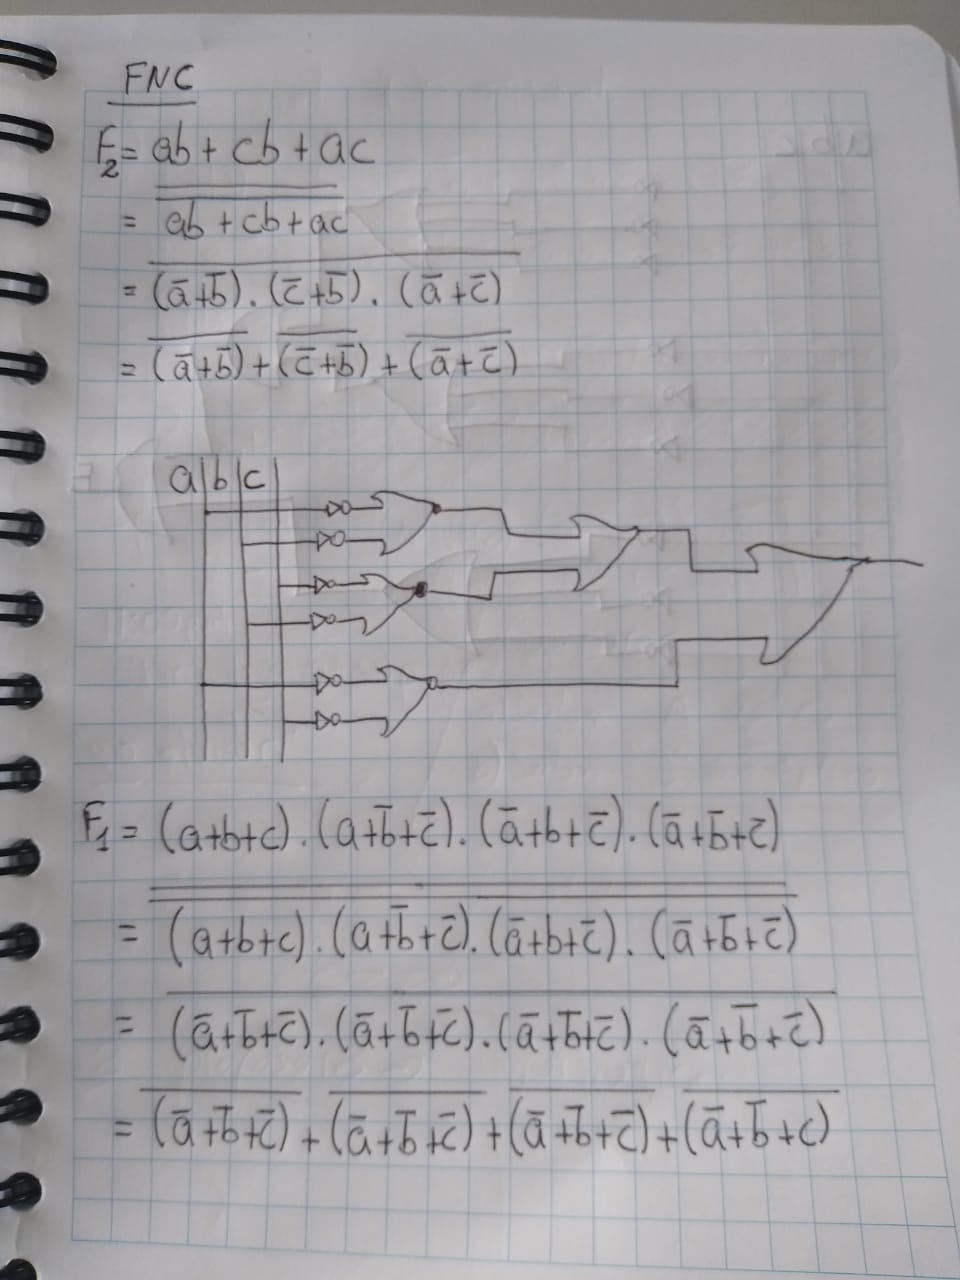 FNC
F₂ = ab + cb + ac
= \overline{\overline{ab + cb + ac}}
= \overline{(ā+b̄) . (c̄+b̄) . (ā+c̄)}
= \overline{(ā+b̄)} + \overline{(c̄+b̄)} + \overline{(ā+c̄)}
a b c
F₁ = (a+b+c) . (a+b̄+c̄) . (ā+b+c̄) . (ā+b̄+c̄)
= \overline{\overline{(a+b+c) . (a+b̄+c̄) . (ā+b+c̄) . (ā+b̄+c̄)}}
= \overline{(ā+b̄+c̄) . (ā+b̄+c̄) . (ā+b̄+c̄) . (ā+b̄+c̄)}
= \overline{(ā+b̄+c̄)} + \overline{(ā+b̄+c̄)} + \overline{(ā+b̄+c̄)} + \overline{(ā+b̄+c)}